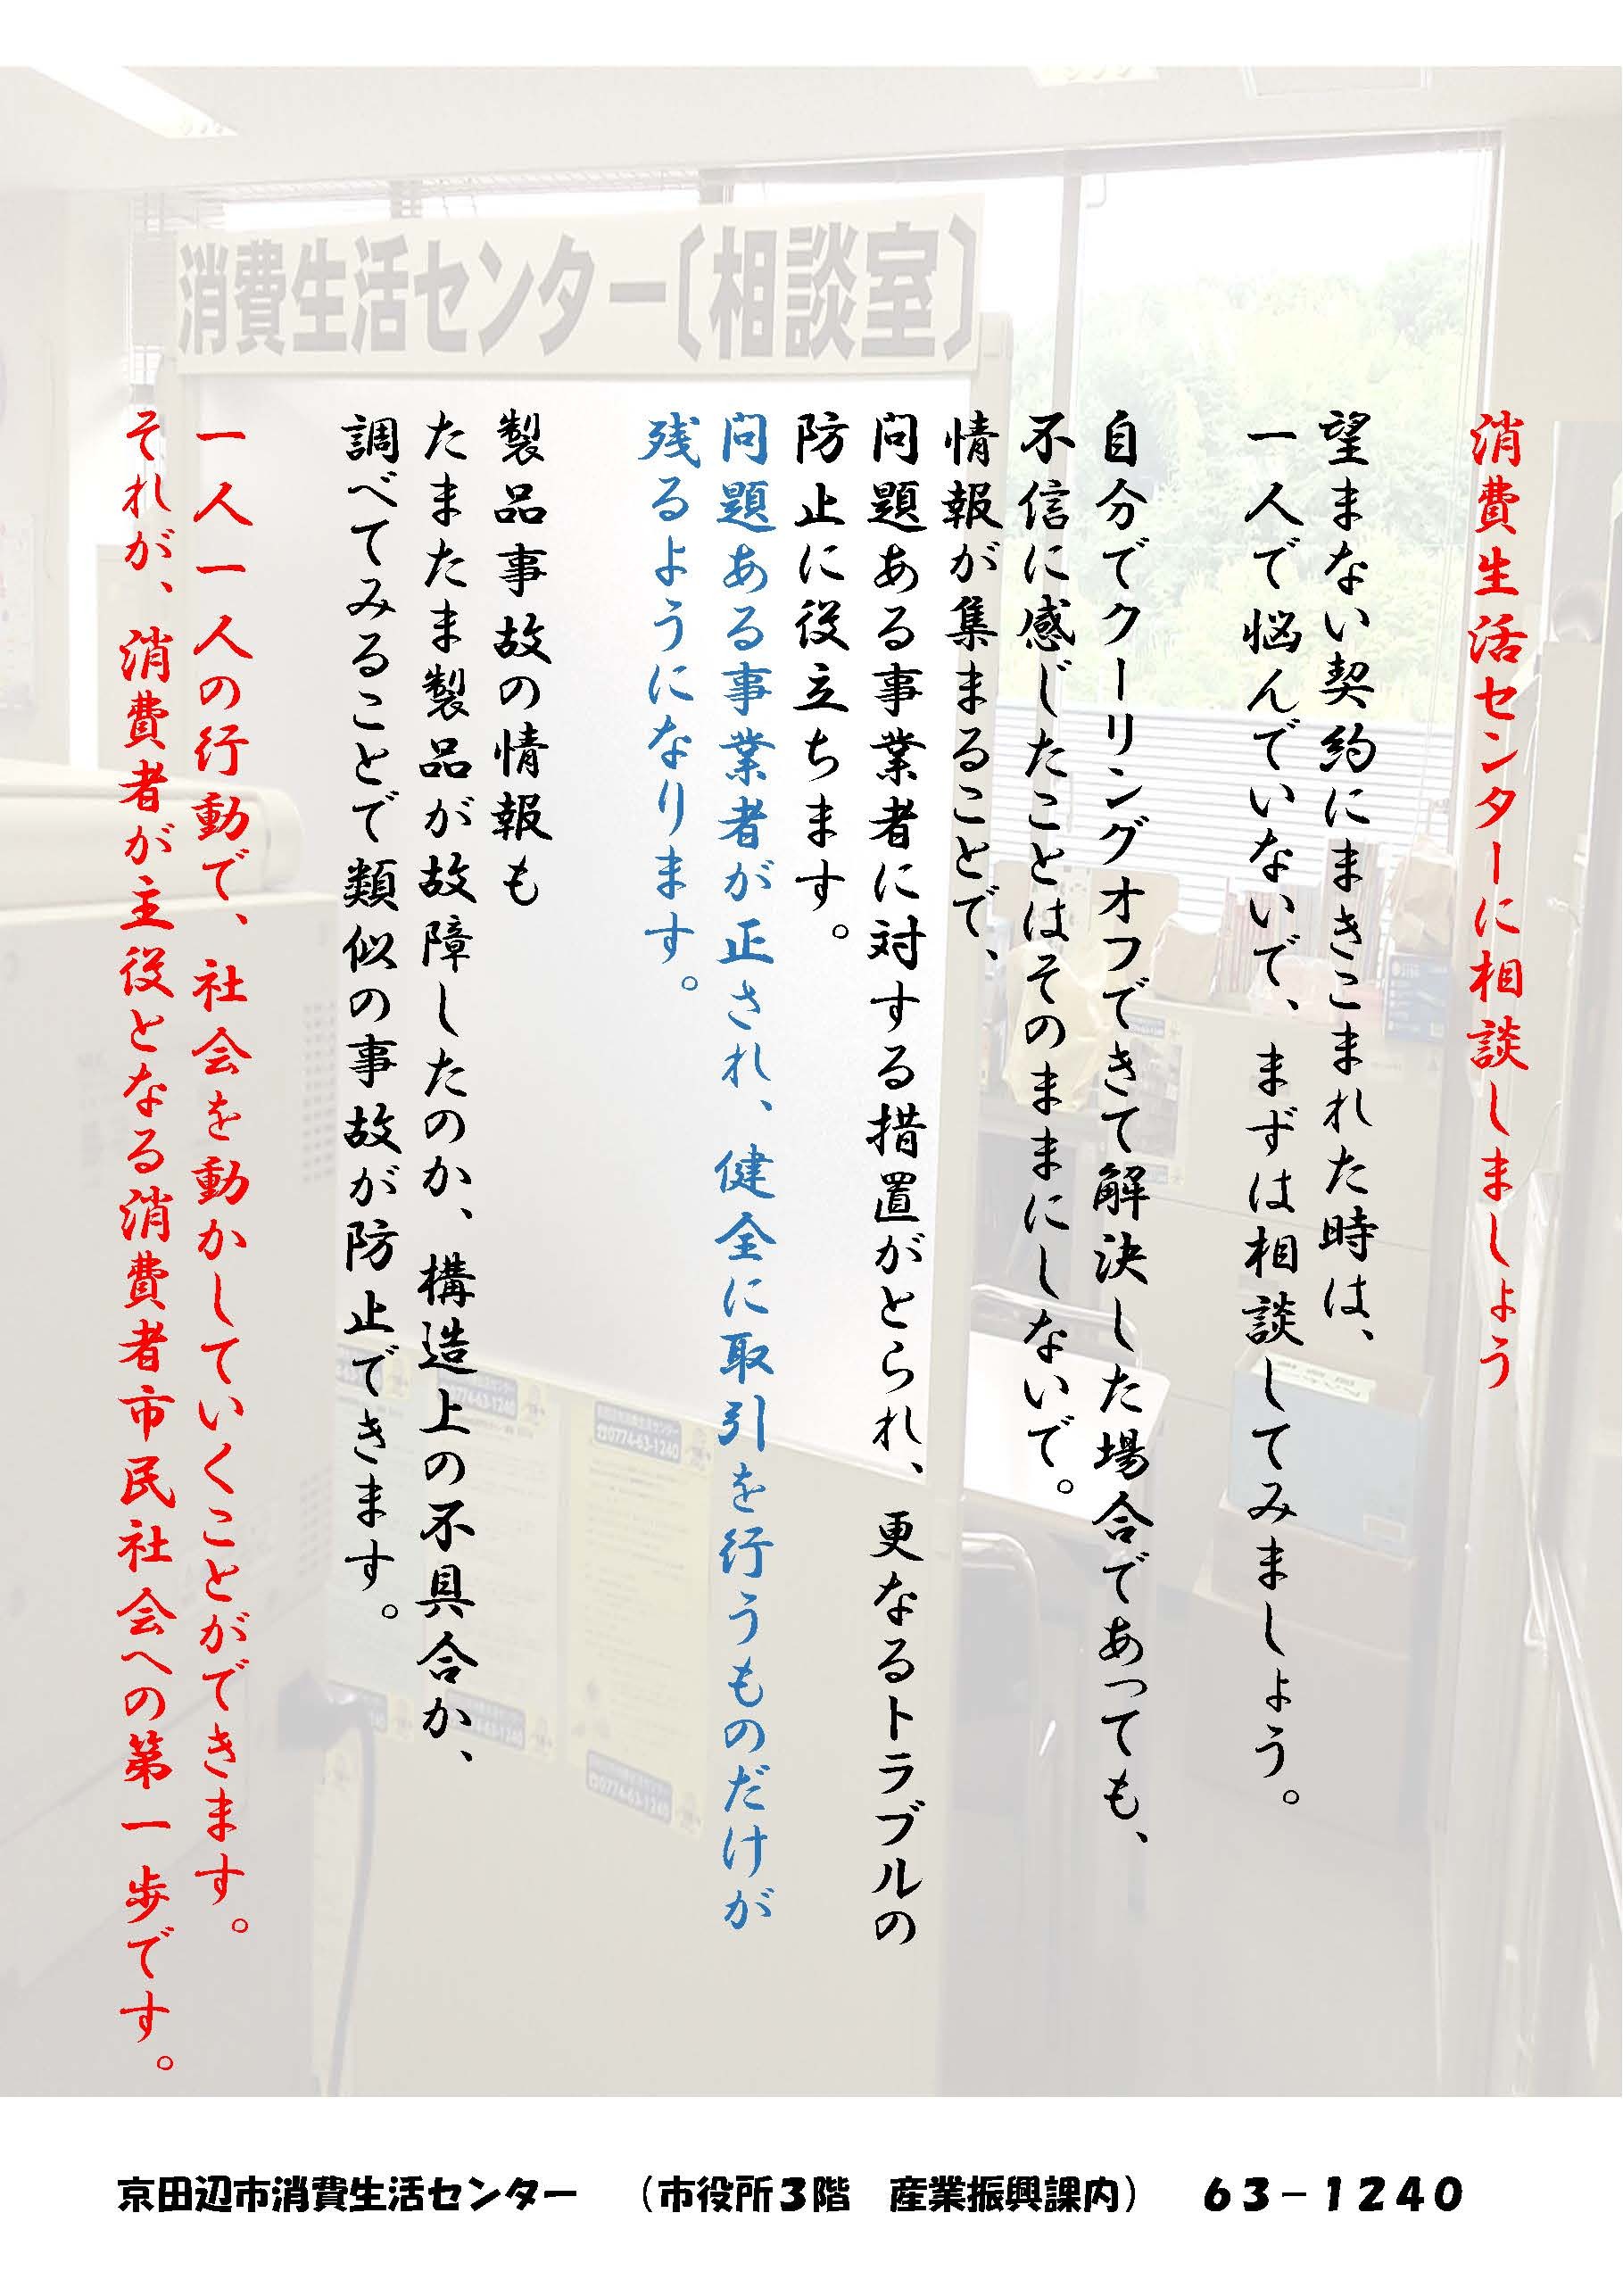 消費生活センターに相談しましょう
望まない契約にまきこまれた時は、
一人で悩んでいないで、まずは相談してみましょう。
自分でクーリングオフできて解決した場合であっても、
不信に感じたことはそのままにしないで。
情報が集まることで、
問題ある事業者に対する措置がとられ、更なるトラブルの
防止に役立ちます。
問題ある事業者が正され、健全に取引を行うものだけが
残るようになります。
製品事故の情報も
たまたま製品が故障したのか、構造上の不具合か、
調べてみることで類似の事故が防止できます。
一人一人の行動で、社会を動かしていくことができます。
それが、消費者が主役となる消費者市民社会への第一歩です。
消費生活センター〔相談室〕
☎0774-63-1240
☎0774-63-1240
京田辺市消費生活センター　（市役所３階　産業振興課内）　６３－１２４０